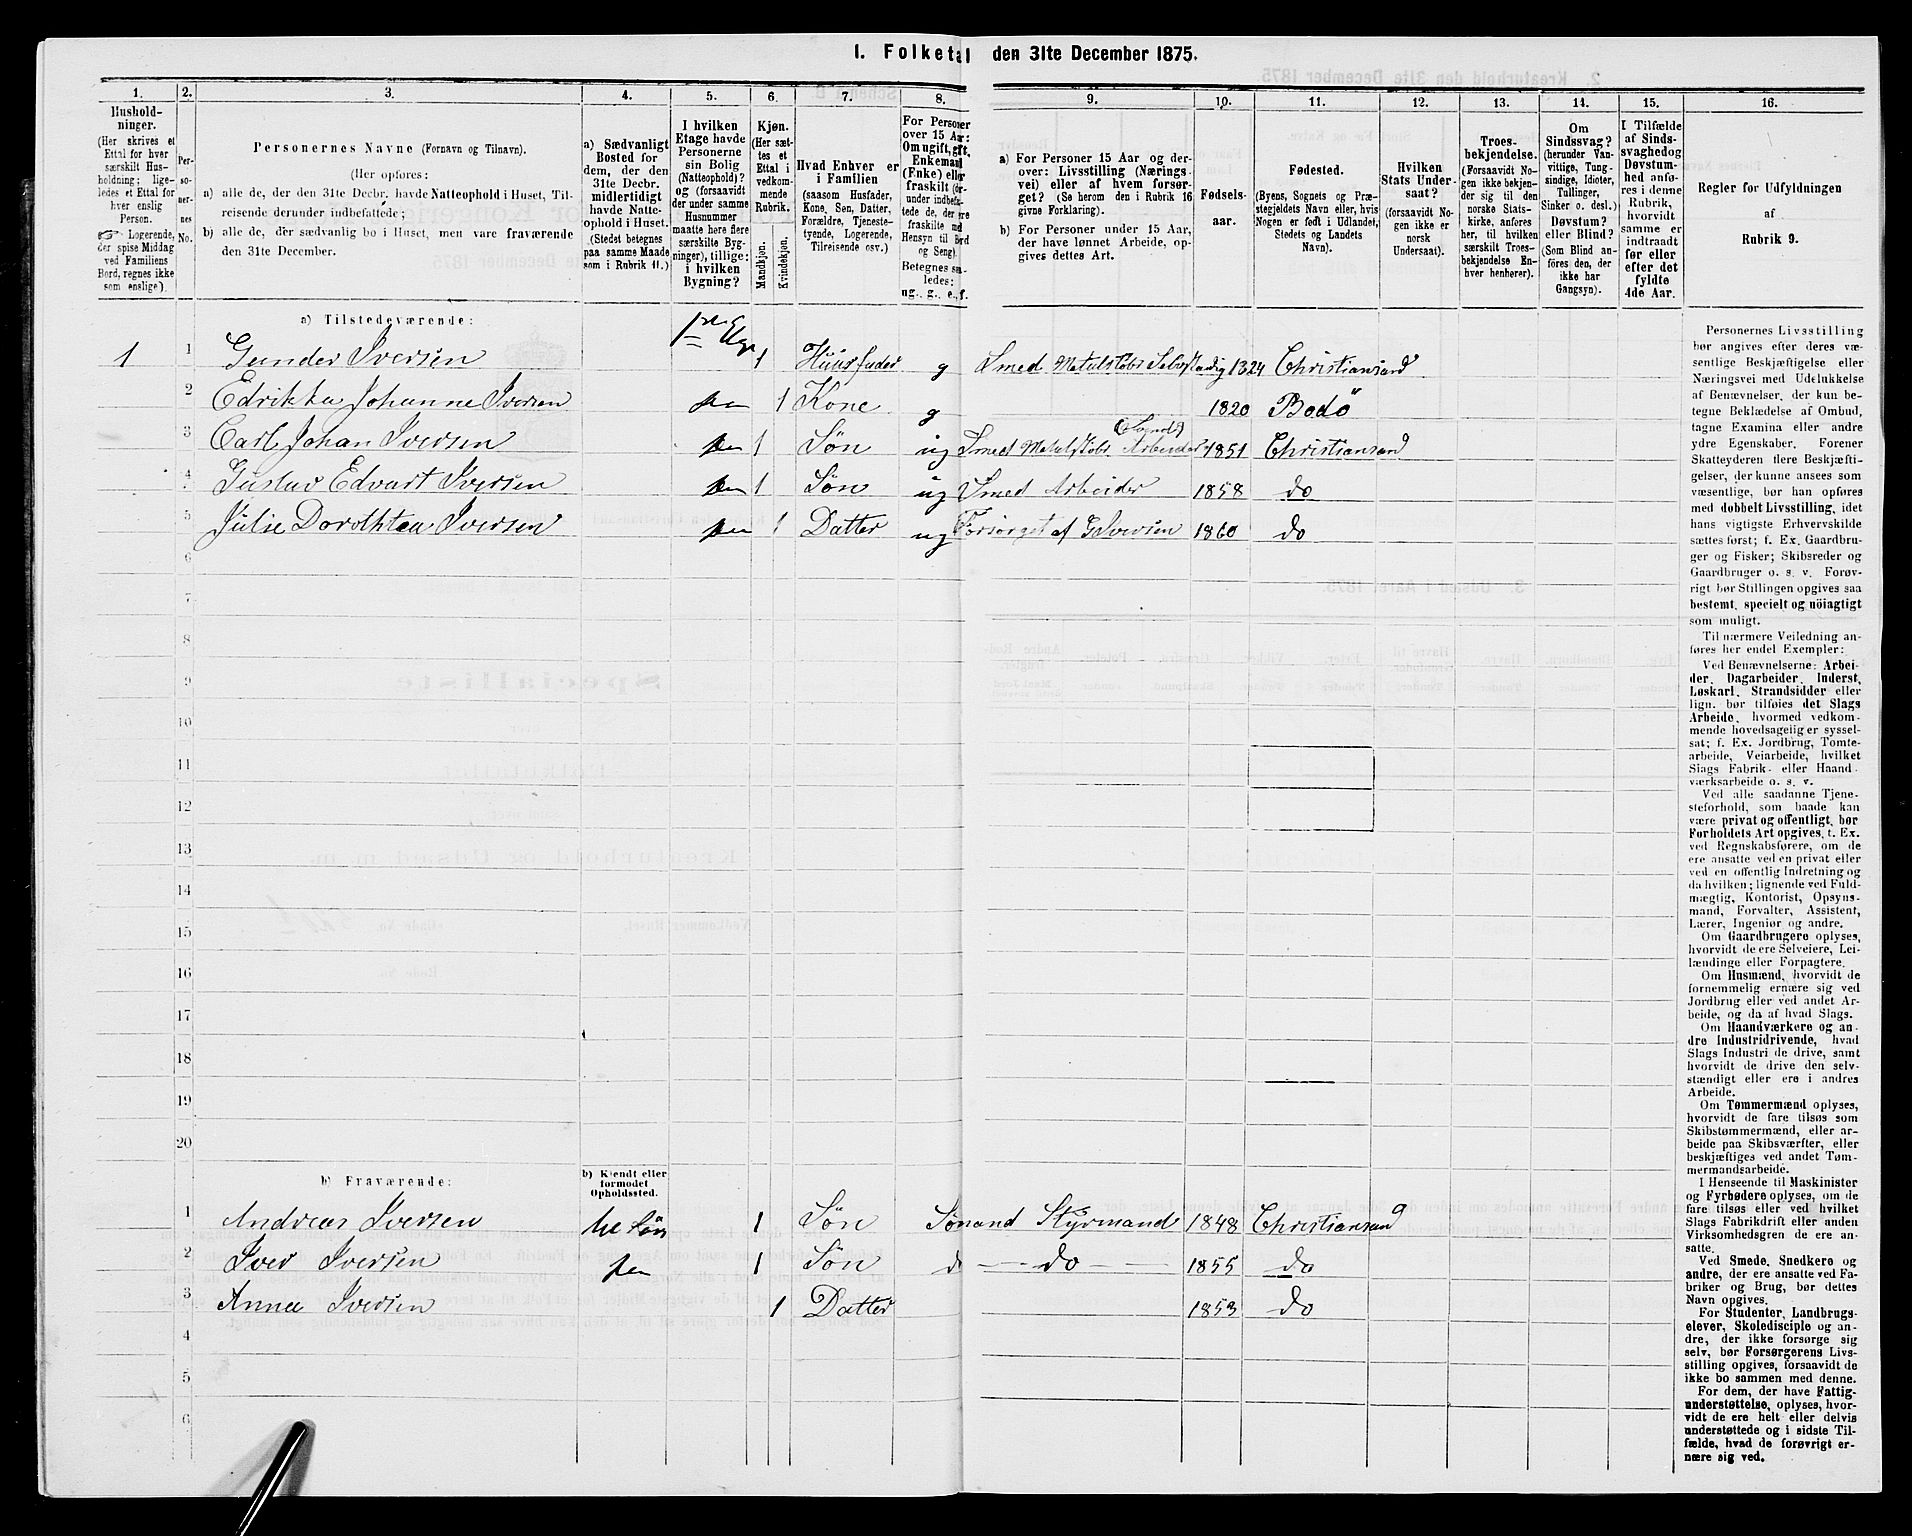 I. Folketal den 31te December 1875.
1. 2. 3. 4. 5. 6. 7. 8. 9. 10. 11. 12. 13. 14. 15. 16.
Hushold-
ninger.
(Her skrives et
Ettal for hver
særskilt Hus-
holdning; lige-
ledes et Ettal for
hver enslig
Person.
☞ Logerende,
der spise Middag
ved Familiens
Bord, regnes ikke
som enslige).
Per-
so-
ner-
nes
No.
Personernes Navne (Fornavn og Tilnavn).
(Her opføres:
a) alle de, der den 31te Decbr. havde Natteophold i Huset, Til-
reisende derunder indbefattede;
b) alle de, der sædvanlig bo i Huset, men vare fraværende
den 31te December.
a) Sædvanligt
Bosted for
dem, der den
31te Decbr.
midlertidigt
havde Natte-
ophold i Huset.
(Stedet betegnes
paa samme Maade
som i Rubrik 11.)
I hvilken
Etage havde
Personerne
sin Bolig
(Natteophold)?
og (forsaavidt
der under samme
Husnummer
maatte høre flere
særskilte Byg-
ninger), tillige:
i hvilken
Bygning?
Kjøn.
(Her sæt-
tes et
Ettal i
vedkom-
mende
Rubrik.
Mandkjøn.
Kvindekjøn.
Hvad Enhver er
i Familien
(saasom Husfader,
Kone, Søn, Datter,
Forældre, Tjeneste-
tyende, Logerende,
Tilreisende osv.)
For Personer
over 15 Aar:
Om ugift, gift,
Enkemand
(Enke) eller
fraskilt (der-
under indbefat-
tede de, der ere
fraskilte med
Hensyn til Bord
og Seng).
Betegnes saa-
ledes:
ug., g., e., f.
a) For Personer 15 Aar og der-
over: Livsstilling (Nærings-
vei) eller af hvem forsør-
get? (Se herom den i Rubrik 16
givne Forklaring).
b) For Personer under 15 Aar,
der have lønnet Arbeide, op-
gives dettes Art.
Fødsels-
aar.
Fødested.
(Byens, Sognets og Præ-
stegjeldets Navn eller, hvis
Nogen er født i Udlandet,
Stedets og Landets
Navn).
Hvilken
Stats Under-
saat?
(forsaavidt No-
gen ikke er
norsk
Undersaat).
Troes-
bekjendelse.
(Forsaavidt No-
gen ikke bekjen-
der sig til den
norske Stats-
kirke, anføres
her, til hvilken
særskilt Troes-
bekjendelse En-
hver henhører).
Om
Sindssvag?
(herunder Van-
vittige, Tung-
sindige, Idioter,
Tullinger,
Sinker o. desl.)
Døvstum?
eller Blind?
(Som Blind an-
føres den, der
ikke har
Gangsyn).
I Tilfælde
af Sinds-
svaghed og
Døvstum-
hed anfø-
res i denne
Rubrik,
hvorvidt
samme er
indtraadt
før eller
efter det
fyldte
4de Aar.
Regler for Udfyldningen
af
Rubrik 9.
a) Tilstedeværende:
1 1 Gunder Iversen 1ste Etge 1 Huusfader g Smed Metalstøber Selvstændig 1824 Christiansand
2 Edrikka Johanne Iversen 1 Kone g 1820 Bodö
3 Carl Johan Iversen 1 Søn ug Smed Metalstøber (Svend) Arbeider 1851 Christiansand
4 Gustav Edvart Iversen 1 Søn ug Smed Arbeider 1858 do
5 Julie Dorothtea Iversen 1 Datter ug Forsørget af G Iversen 1860 do
6
7
8
9
10
11
12
13
14
15
16
17
18
19
20
b) Fraværende:
b) Kjendt eller
formodet
Opholdssted.
1 Andreas Iversen 1 Søn Sømand Styrmand 1848 Christiansand
2 Iver Iversen 1 Søn do — do — 1855 do
3 Anna Iversen 1 Datter 1853 do
4
5
6
Personernes Livsstilling
bør angives efter deres væ-
sentlige Beskjæftigelse eller
Næringsvei med Udelukkelse
af Benævnelser, der kun be-
tegne Beklædelse af Ombud,
tagne Examina eller andre
ydre Egenskaber. Forener
Skatteyderen flere Beskjæfti-
gelser, der kunne ansees som
væsentlige, bør han opføres
med dobbelt Livsstilling, idet
hans vigtigste Erhvervskilde
sættes først; f. Ex. Gaardbru-
ger og Fisker; Skibsreder og
Gaardbruger o. s. v. Forøv-
rigt bør Stillingen opgives saa
bestemt, specielt og nöiagtigt
som muligt.
Til nærmere Veiledning an-
føres her endel Exempler:
Ved Benævnelserne: Arbei-
der, Dagarbeider, Inderst,
Løskarl, Strandsidder eller
lign. bør tilføies det Slags
Arbeide, hvormed vedkom-
mende hovedsagelig er syssel-
sat; f. Ex. Jordbrug, Tomte-
arbeide, Veiarbeide, hvilket
Slags Fabrik- eller Haand-
værksarbeide o. s. v.
Ved alle saadanne Tjene-
steforhold, som baade kan
være privat og offentligt, bør
Forholdets Art opgives, t. Ex.
ved Regnskabsførere, om de
ere ansatte ved en privat eller
ved en offentlig Indretning og
da hvilken; lignende ved Fuld-
mægtig, Kontorist, Opsyns-
mand, Forvalter, Assistent,
Lærer, Ingeniør og andre.
Om Gaardbrugere oplyses,
hvorvidt de ere Selveiere, Lei-
lændinge eller Forpagtere.
Om Husmænd, hvorvidt de
fornemmelig ernære sig ved
Jordbrug eller ved andet Ar-
beide, og da af hvad Slags.
Om Haandværkere og an-
dre Industridrivende, hvad
Slags Industri de drive, samt
hvorvidt de drive den selv-
stændigt eller ere i andres
Arbeide.
Om Tømmermænd oplyses,
hvorvidt de fare tilsøs som
Skibstømmermænd, eller ar-
beide paa Skibsværfter, eller
beskjæftiges ved andet Tøm-
mermandsarbeide.
I Henseende til Maskinister
og Fyrbødere oplyses, om de
fare tilsøs eller ved hvilket
Slags Fabrikdrift eller anden
Virksomhedsgren de ere an-
satte.
Ved Smede, Snedkere og
andre, der ere ansatte ved Fa-
briker og Brug, bør dettes
Navn opgives.
For Studenter, Landbrugs-
elever, Skoledisciple og an-
dre, der ikke forsørge sig
selv, bør Forsørgerens Livs-
stilling opgives, forsaavidt de
ikke bo sammen med denne.
For dem, der have Fattig-
understøttelse, oplyses, hvor-
vidt de ere helt eller delvis
understøttede og i sidste Til-
fælde, hvad de forøvrigt er-
nære sig ved.